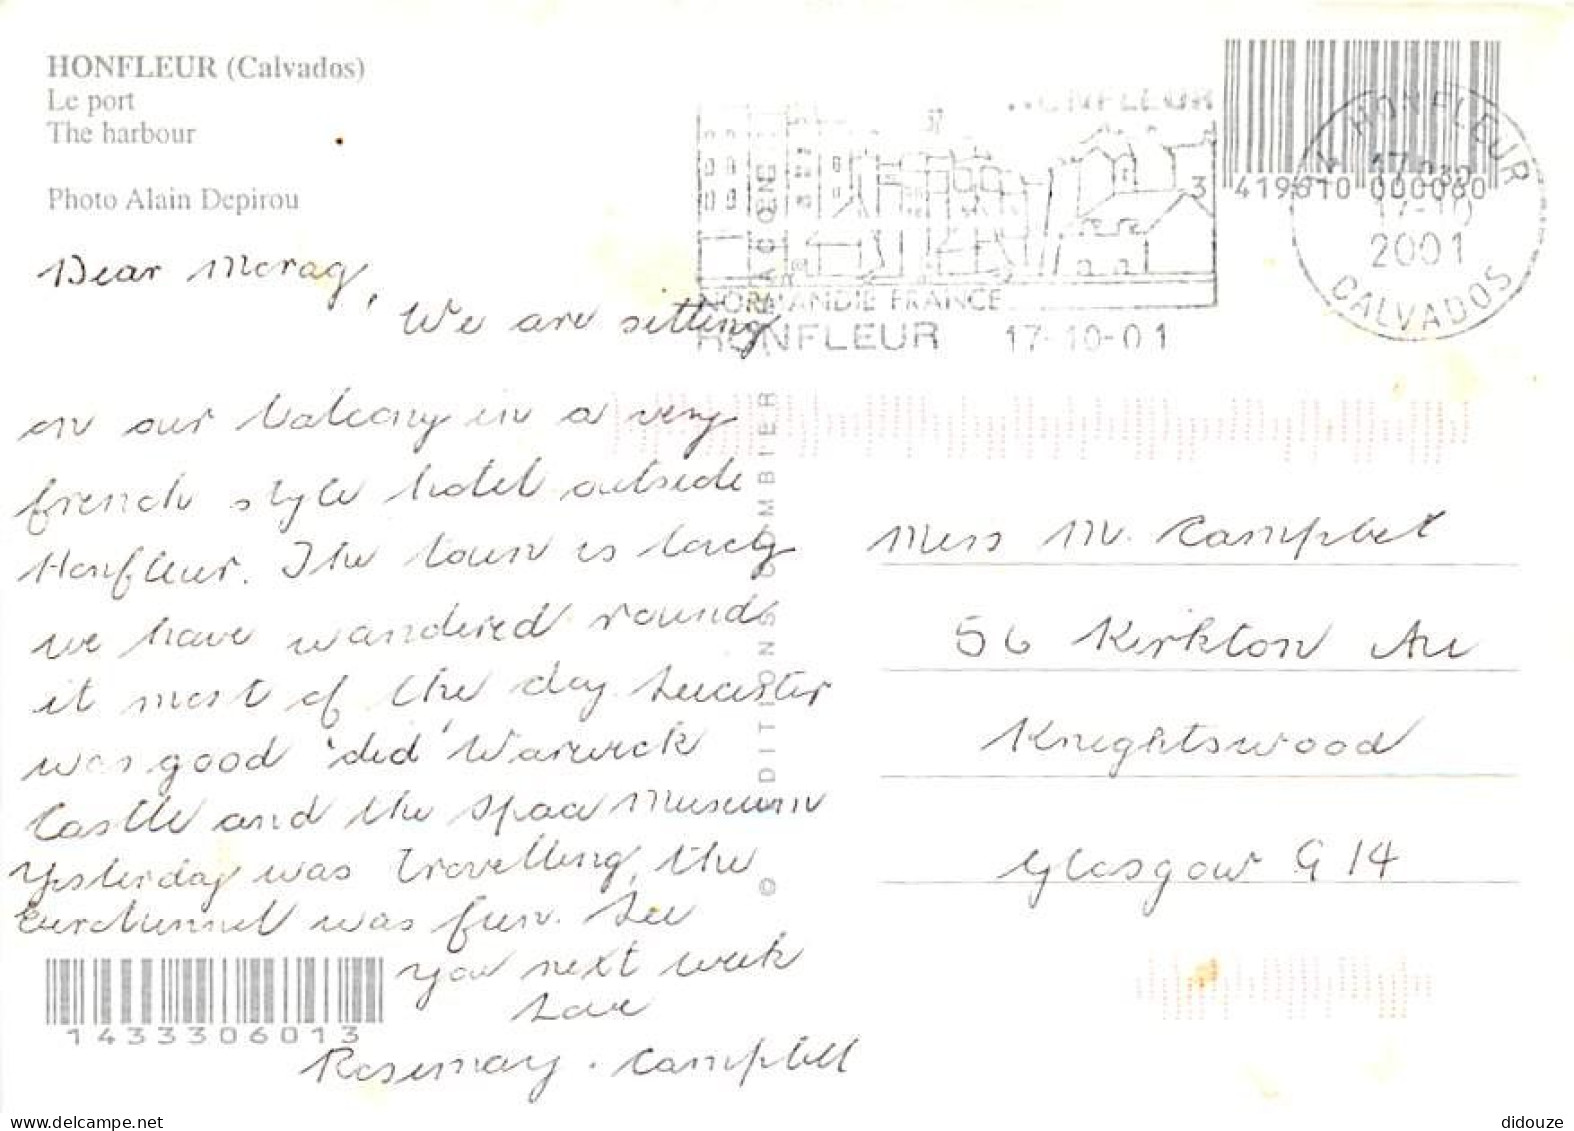 HONFLEUR (Calvados)
Le port
The harbour
Photo Alain Depirou
HONFLEUR
NORMANDIE FRANCE
HONFLEUR 17-10-01
HONFLEUR
17-10
2001
CALVADOS
3 419610 000060
Dear Morag,
We are sitting
on our balcony in a very
french style hotel outside
Honfleur. The town is lovely
we have wandered round
it most of the day. Leicester
was good 'did' Warwick
Castle and the Space Museum
Yesterday was travelling, the
Eurotunnel was fun. See
you next week
Love
Rosemay. Campbell
EDITIONS COMBIER
©
Miss M. Campbel
56 Kirkton Av
Knightswood
Glasgow G14
1433306013
didouze